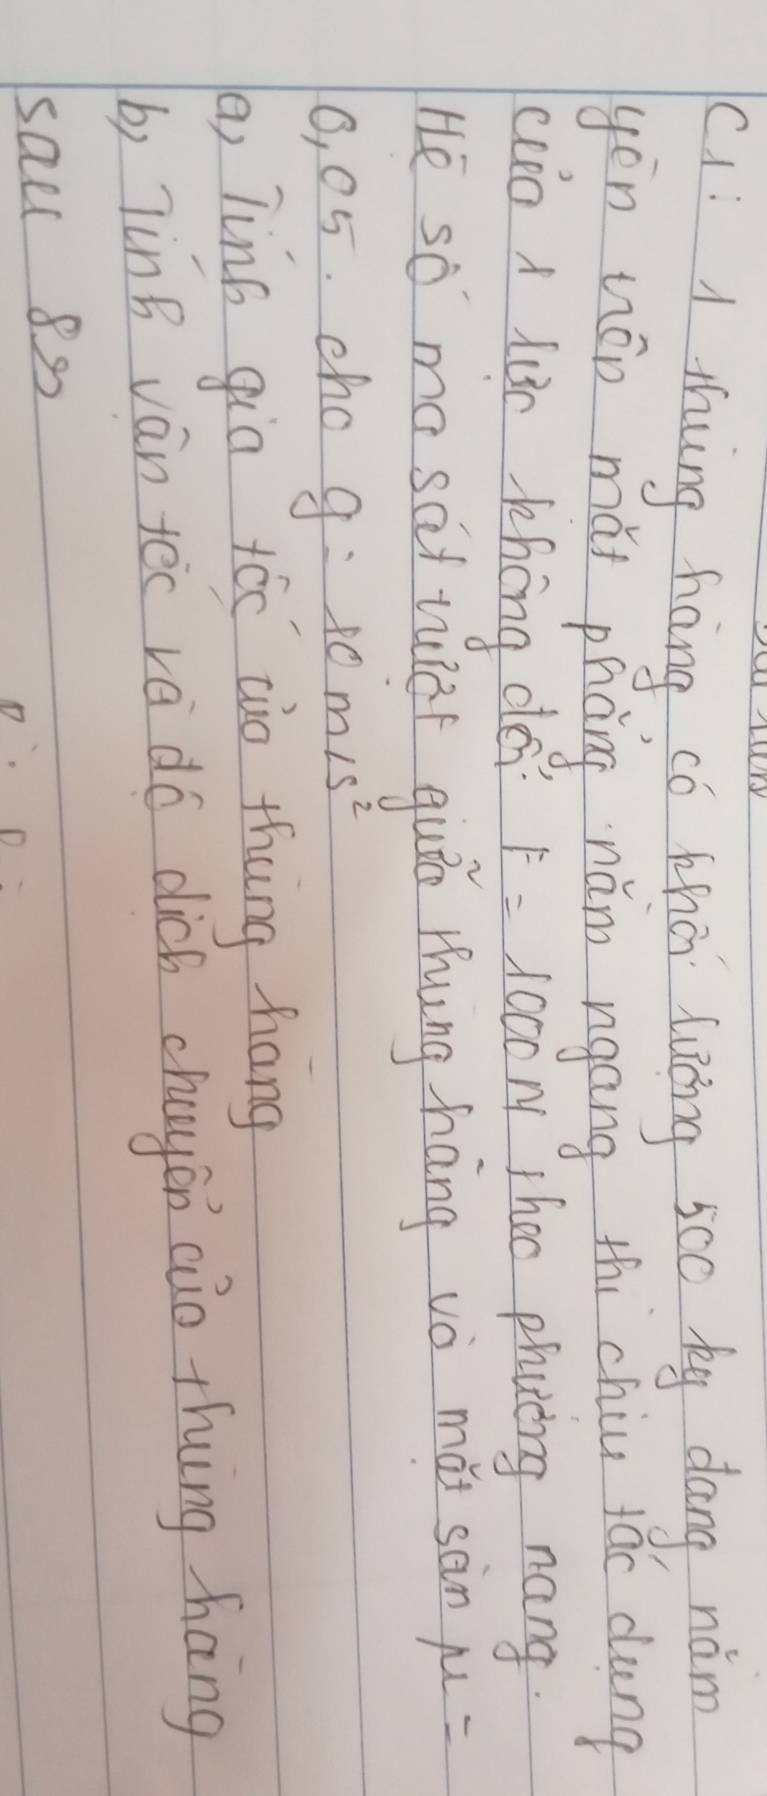 C1: 1 thùng hàng có khối lượng 500 kg đang nằm
yên trên mặt phẳng nằm ngang thì chịu tác dụng
của 1 lực không đổi F = 1000 N theo phương nang.
Hệ số ma sát trượt giữa thùng hàng và mặt sàn μ =
0,05. cho g = 10 m/s²
a, Tính gia tốc của thùng hàng
b, Tính vận tốc và độ dịch chuyển của thùng hàng
sau 8s